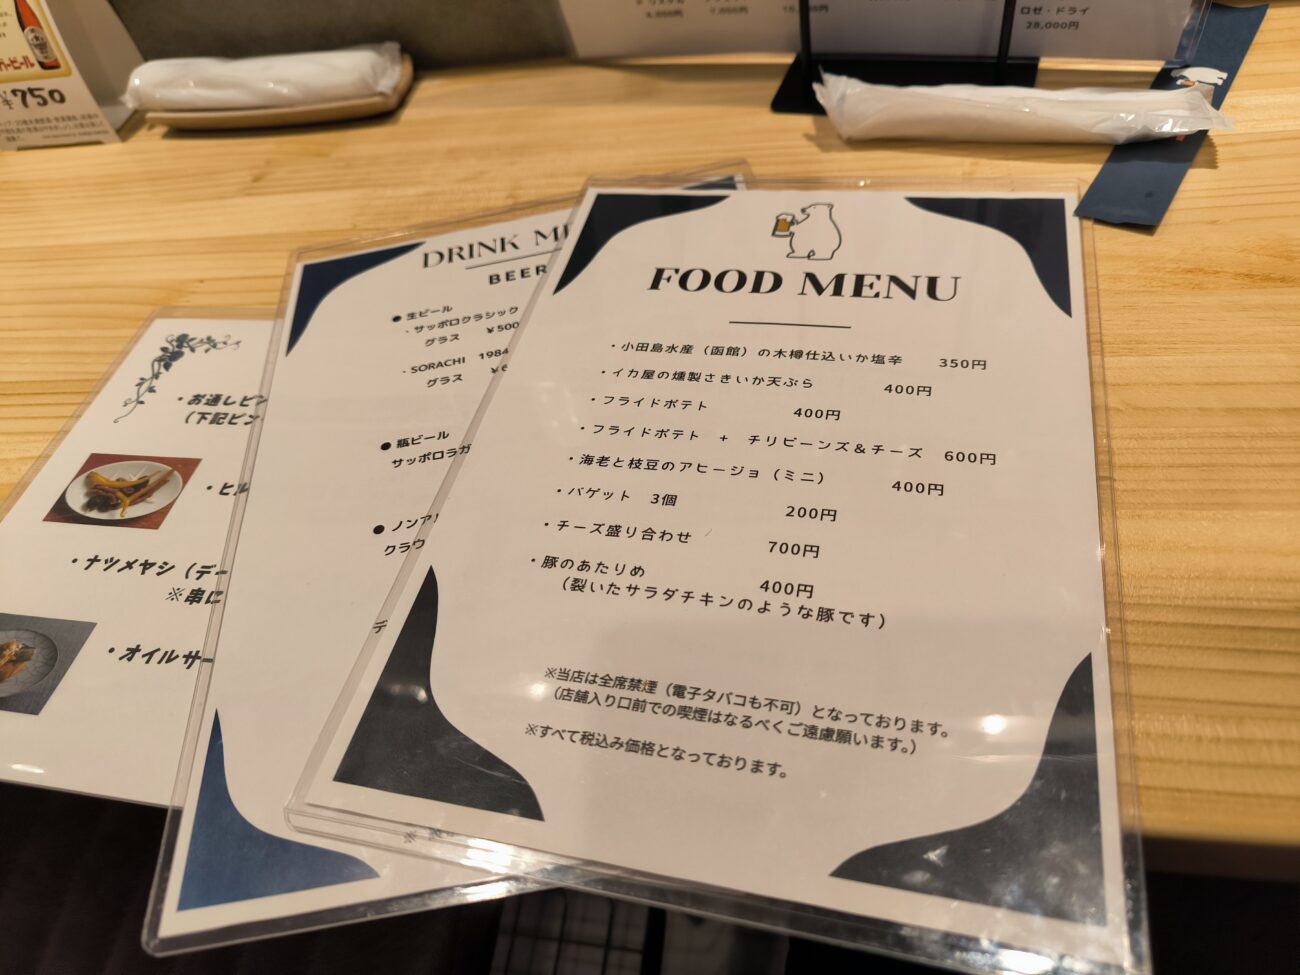 750
28,000円
ロゼ・ドライ
FOOD MENU
・小田島水産（函館）の木樽仕込いか塩辛 350円
・イカ屋の燻製さきいか天ぷら 400円
・フライドポテト 400円
・フライドポテト + チリビーンズ＆チーズ 600円
・海老と枝豆のアヒージョ（ミニ） 400円
・バゲット 3個 200円
・チーズ盛り合わせ 700円
・豚のあたりめ 400円
（裂いたサラダチキンのような豚です）
※当店は全席禁煙（電子タバコも不可）となっております。
（店舗入り口前での喫煙はなるべくご遠慮願います。）
※すべて税込み価格となっております。
DRINK
BEER
●生ビール
・サッポロクラシック
グラス ¥500
・SORACHI 1984
グラス
●瓶ビール
サッポロラガ
●ノンア
クラウ
・お通しピン
（下記ピン
・ヒル
・ナツメヤシ（デー
※串に
・オイルサー